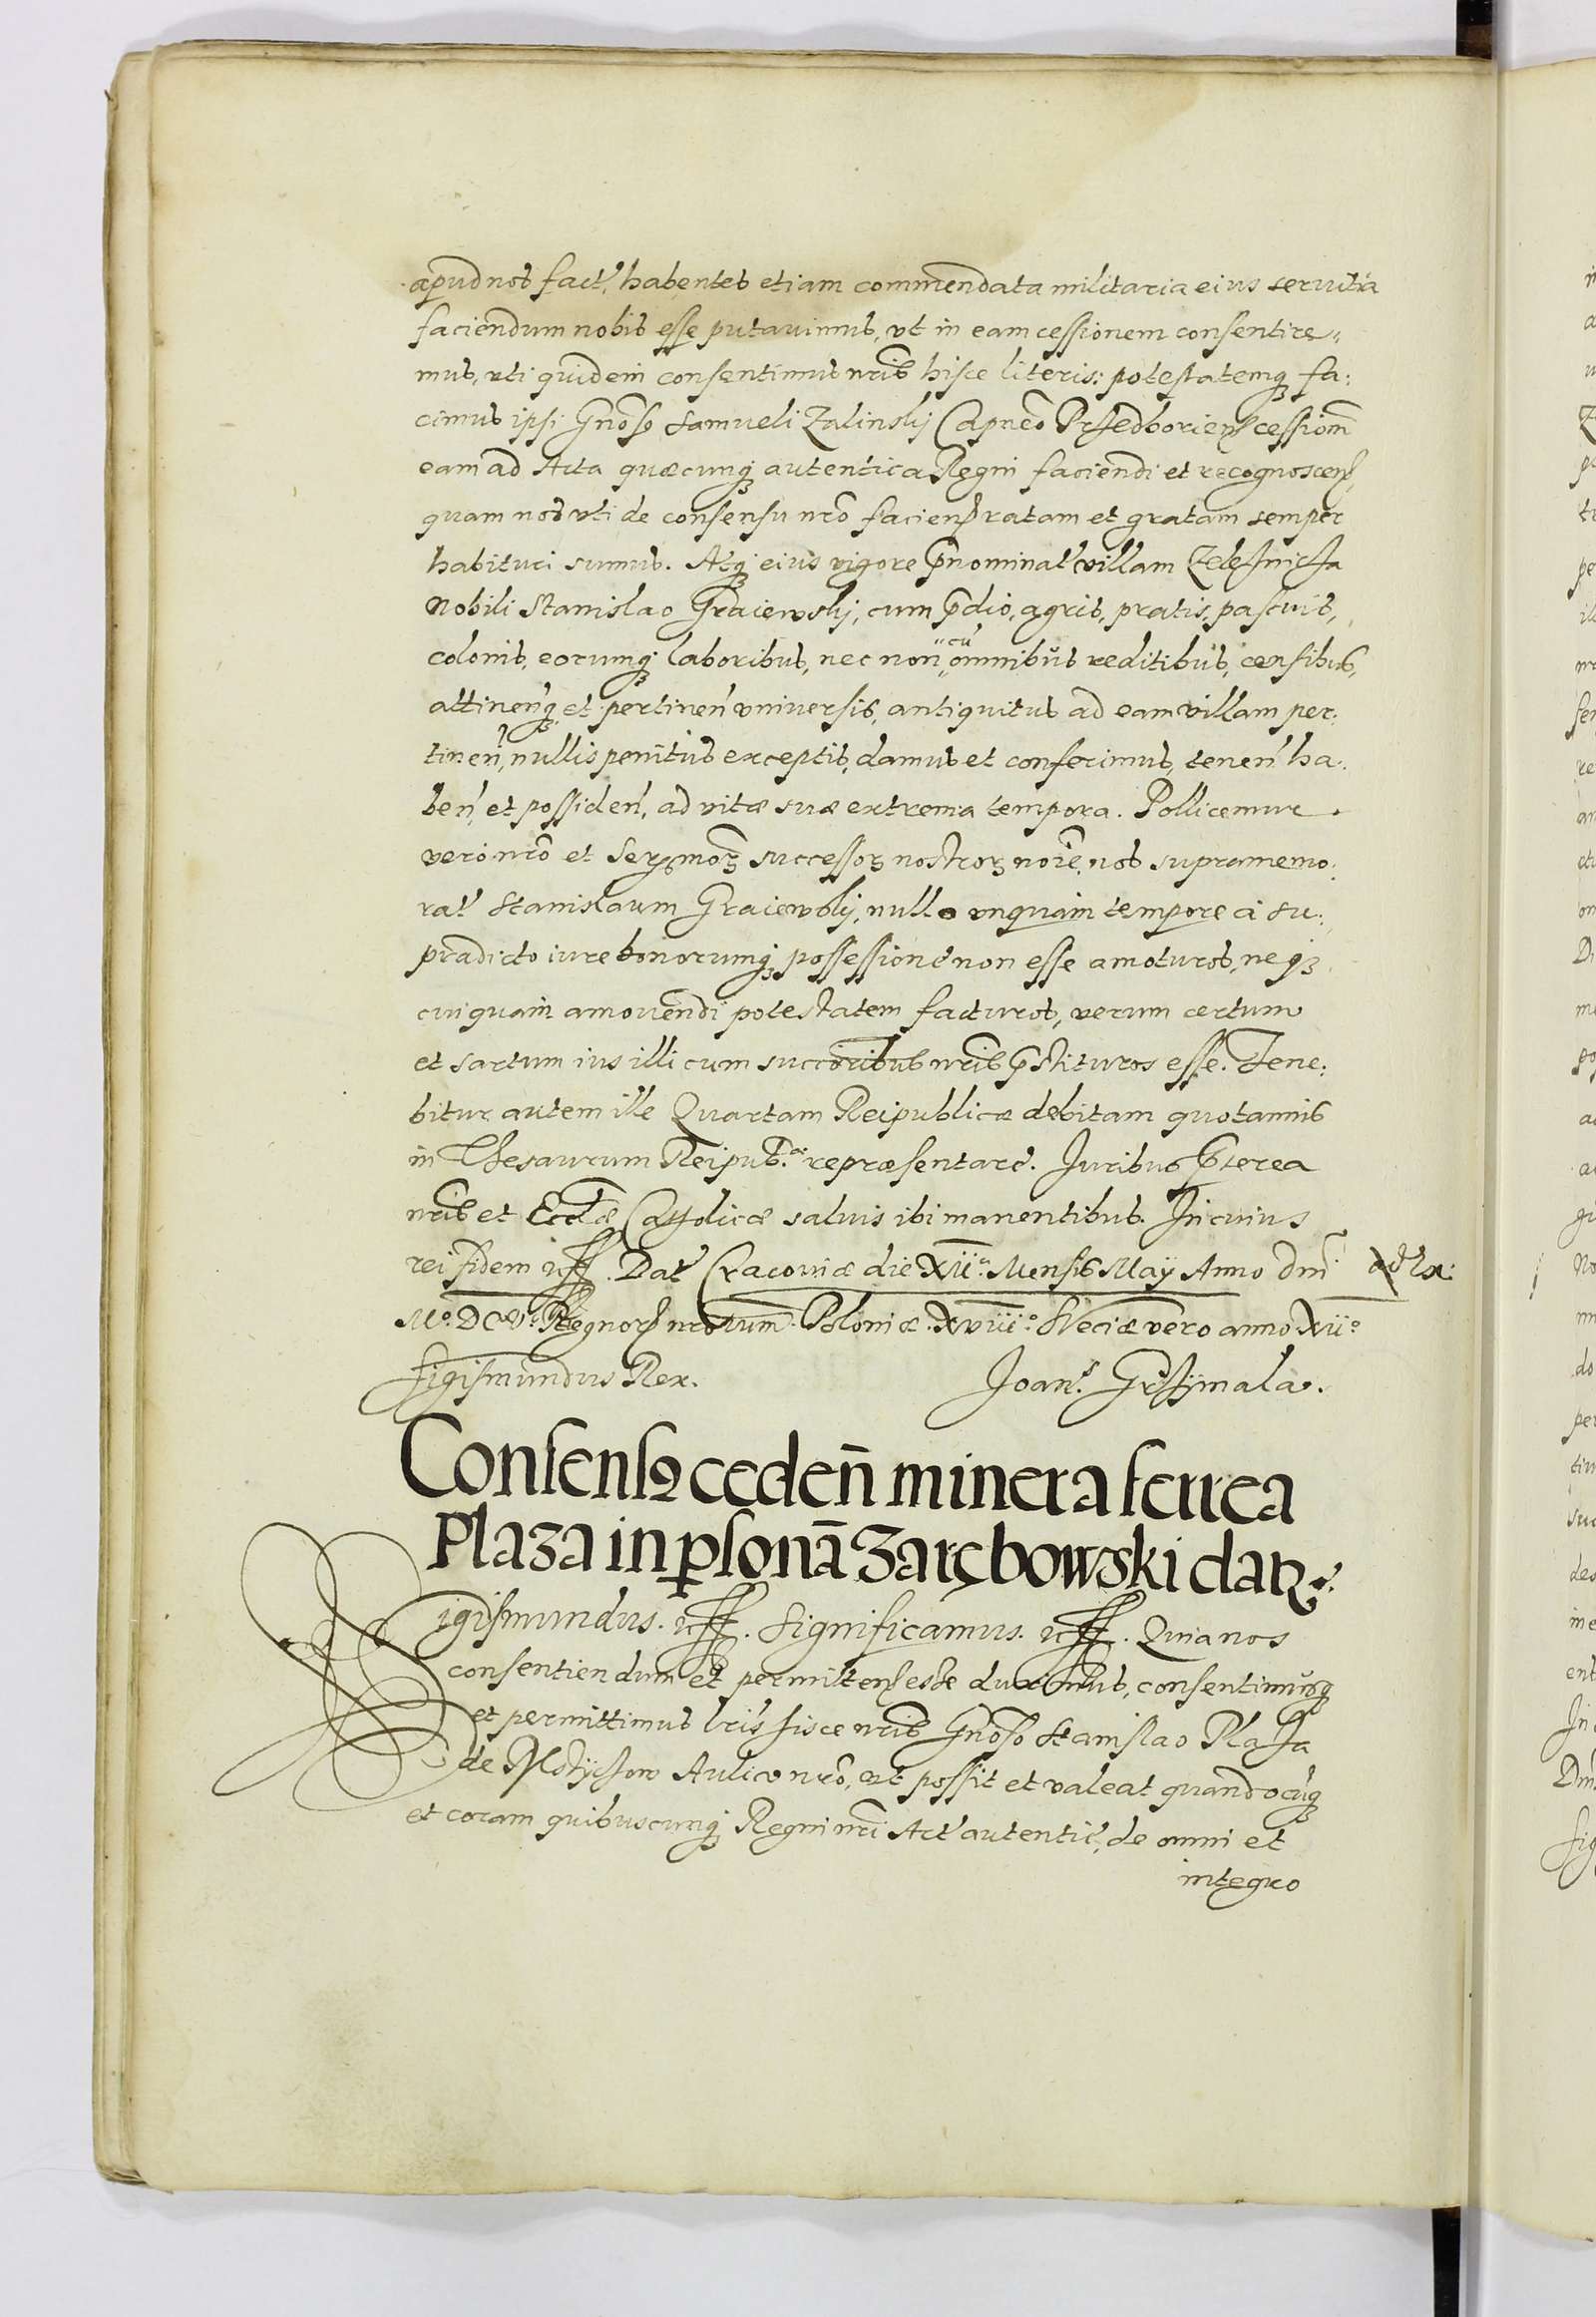 apud nos fact', habentes etiam commendata militaria eius seruitia
faciendum nobis esse putauimus, vt in eam cessionem consentire„
mus, vti quidem consentimus nr̃is hisce literis: potestatemqȝ fa:
cimus ipsi Gnõso Samueli Zalinskij Capneõ Przedborien̄ cessionem̄
eam ad Acta quæcunqȝ autentica Regni faciendi et recognoscen̄,
quam nos vti de consensu nrõ facien̄ ratam et gratam semper
habituri sumus. Atqȝ eius vigore p̃nominat' villam
Nobili Stanislao Graiewskij, cum p̃dio, agris, pratis, pascuis,
colonis, eorumqȝ laboribus, nec non „cũ„ omnibus reditibus, censibus,
attinen̄qȝ et pertinen̄ vniuersis, antiquitus ad eam villam per:
tinen̄, nullis penitus exceptis, damus et conferimus, tenen̄ ha:
ben̄, et possiden̄, ad vitæ suæ extrema tempora. Pollicemur
vero nrõ et Serѕ̃moȝ successoȝ nostroȝ noĩe, nos supramemo:
rat' Stanislaum Graiewskij, nullo vnquam tempore a su:
pradicto iure bonorumqȝ possessione non esse amoturos, neqȝ
cuiquam amouendi potestatem facturos, verum certum
et sartum ius illi cum succoribus nr̃is p̃stituros esse. Tene:
bitur autem ille Quartam Reipublicæ debitam quotannis
in Thesaurum Reipub.æ repræsentare. Juribus p̃terea
nr̃is et Eccl̃æ Catholicæ saluis ibi manentibus. In cuius
rei fidem etc. Dat' Cracouiæ die XII.ª Mensis Maÿ Anno Dm̃
Mº. DCVº. Regnor̃ nrorum. Poloniæ. XVIIIº. Sueciæ vero anno XIIº
Sigismundus Rex. Joan.s Grzÿmala.
Consensꝰ ceden̄ minera ferrea
Plaza in ꝑsonā Zarębowski datꝛ.
Sigismundus. etc. Significamus. etc. Quia nos
consentiendum et permitten̄ esse duximus, consentimusqȝ
et permittimus lr̃is hisce nr̃is Gnõso Stanislao Plaza
de Mstÿczow Aulico nrõ, vt possit et valeat quandocũqȝ
et coram quibuscunqȝ Regni nr̃i Act' autentic', de omni et
integro